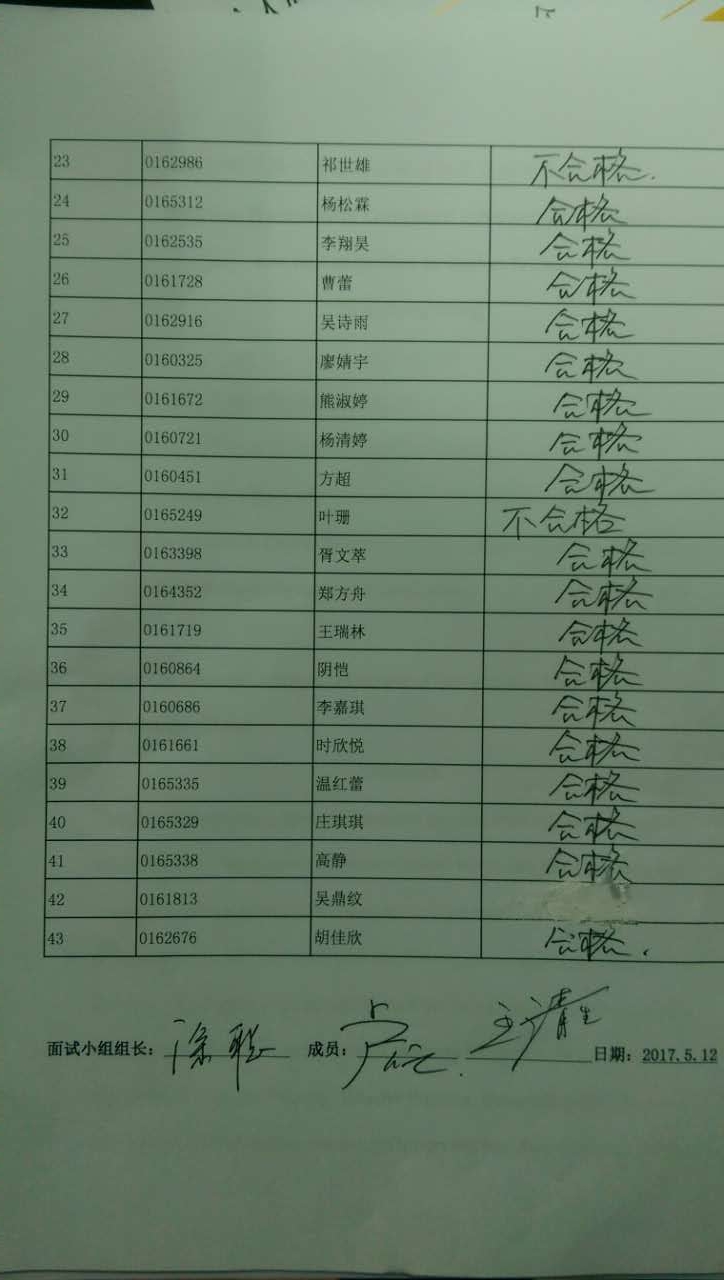 23 0162986 祁世雄 不合格.
24 0165312 杨松霖 合格
25 0162535 李翔昊 合格
26 0161728 曹蕾 合格
27 0162916 吴诗雨 合格
28 0160325 廖婧宇 合格
29 0161672 熊淑婷 合格
30 0160721 杨清婷 合格
31 0160451 方超 合格
32 0165249 叶珊 不合格
33 0163398 胥文萃 合格
34 0164352 郑方舟 合格
35 0161719 王瑞林 合格
36 0160864 阴恺 合格
37 0160686 李嘉琪 合格
38 0161661 时欣悦 合格
39 0165335 温红蕾 合格
40 0165329 庄琪琪 合格
41 0165338 高静 合格
42 0161813 吴鼎纹
43 0162676 胡佳欣 合格.
面试小组组长： 成员： 日期：2017.5.12